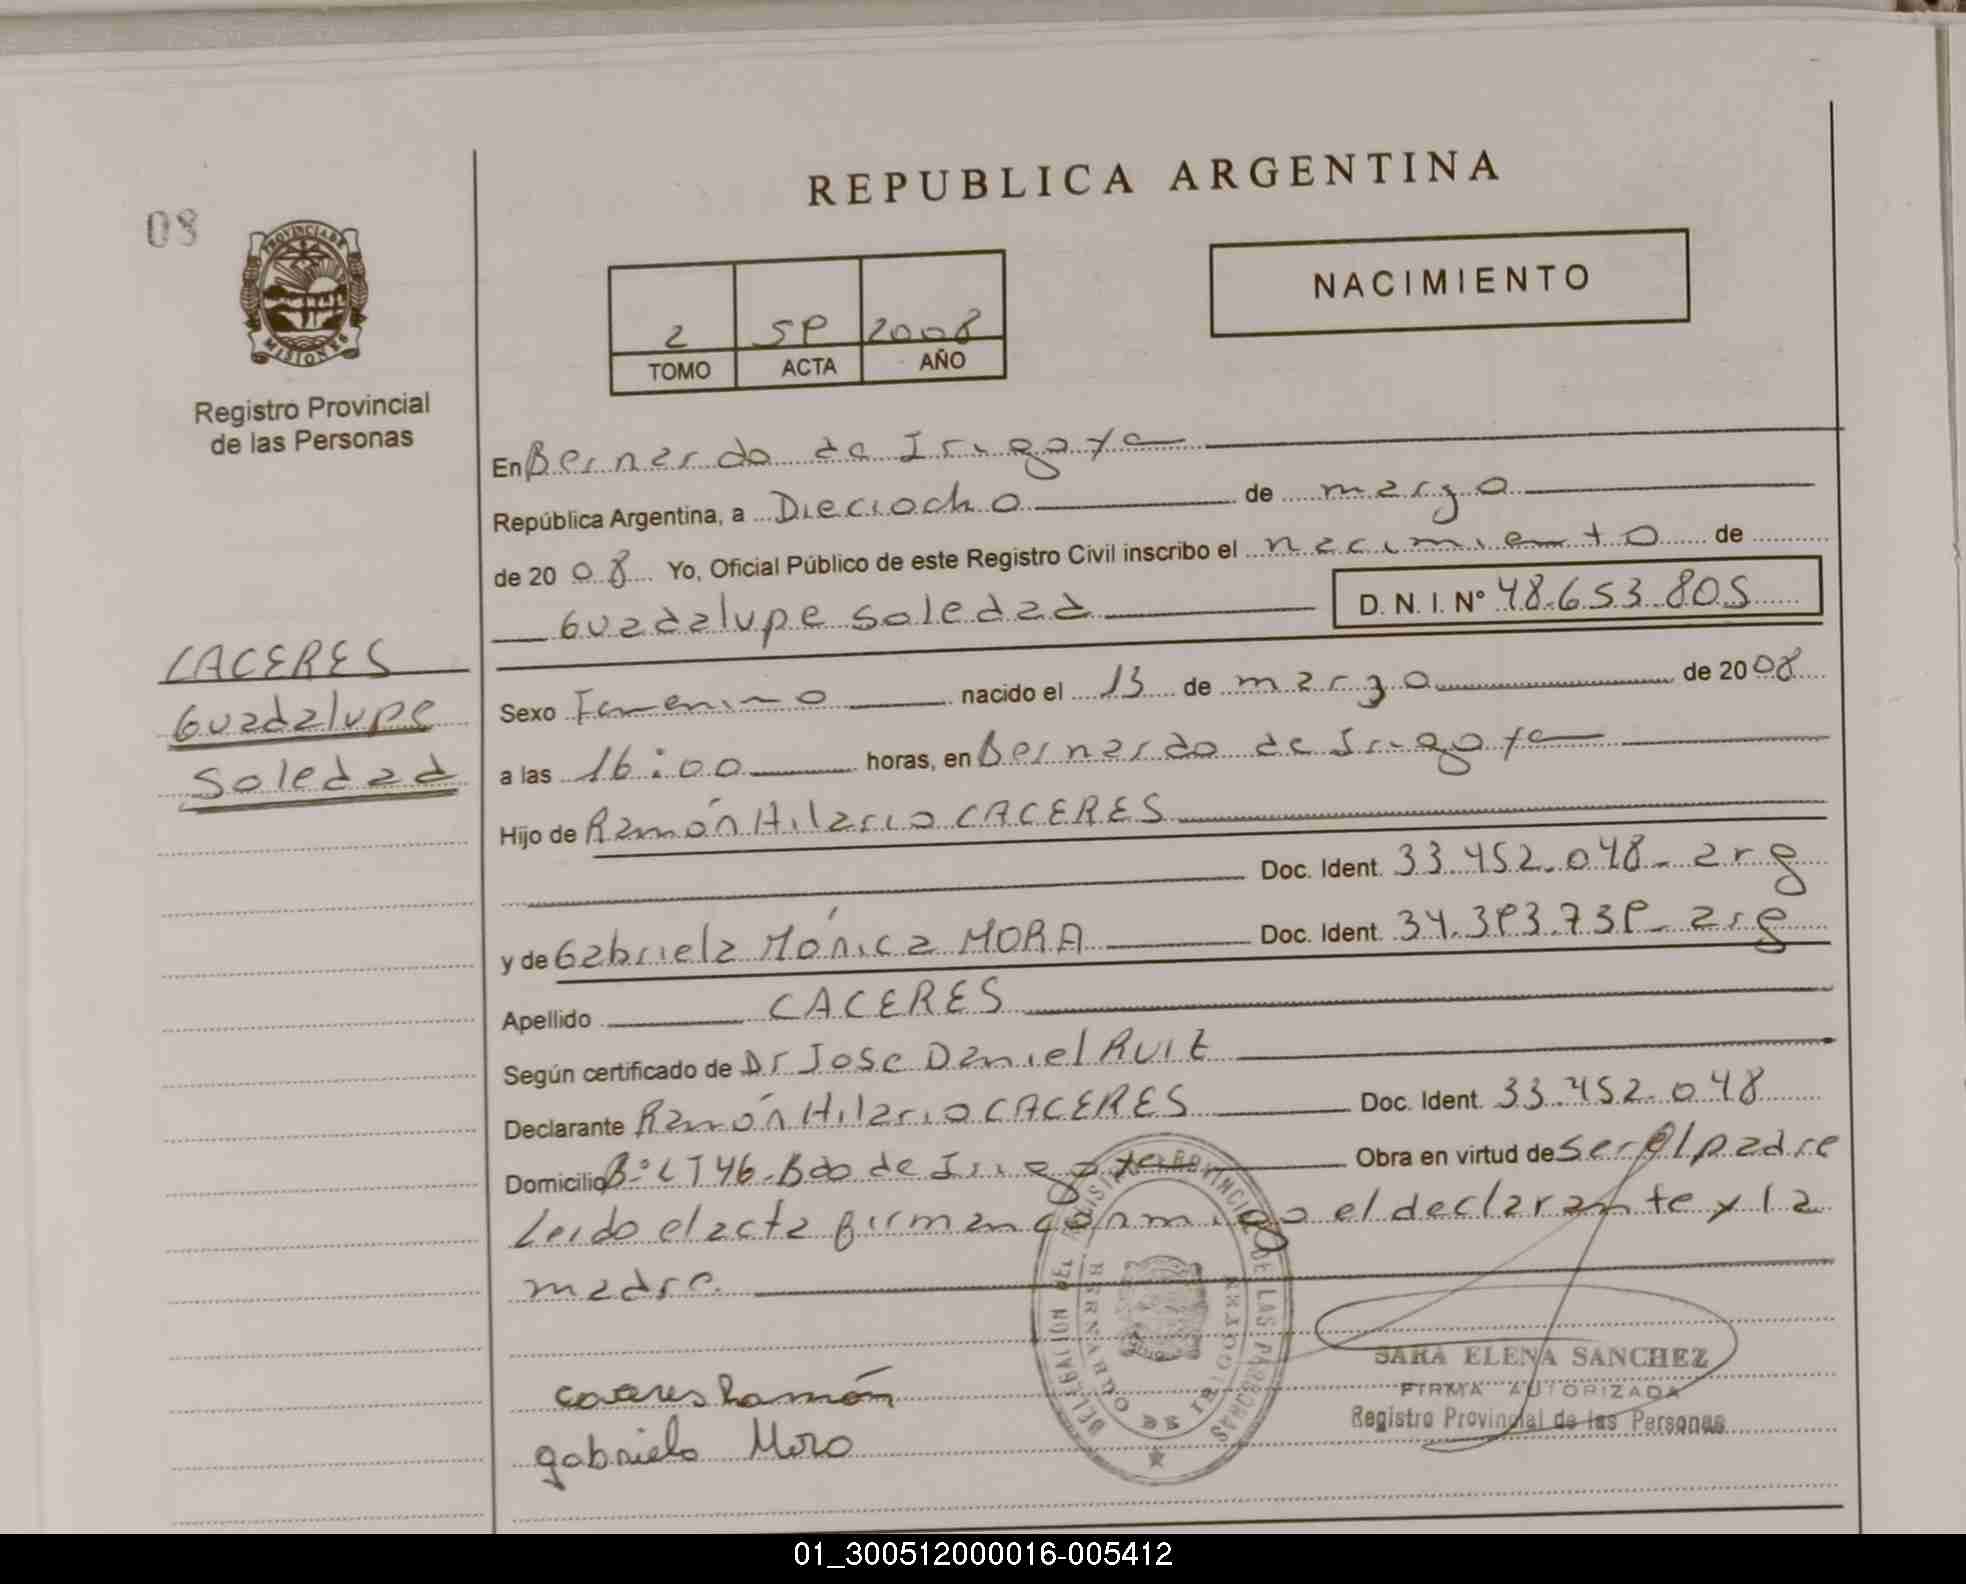 REPUBLICA ARGENTINA
08
PROVINCIA DE
MISIONES
Registro Provincial
de las Personas
NACIMIENTO
2 59 2008
TOMO ACTA AÑO
En Bernardo de Irigoye
República Argentina, a Dieciocho de marzo
de 2008 Yo, Oficial Público de este Registro Civil inscribo el nacimiento de
Guadalupe Soledad D. N. I. Nº 48.653.805
CACERES
Guadalupe
Soledad
Sexo Femenino nacido el 13 de marzo de 2008
a las 16:00 horas, en Bernardo de Irigoye
Hijo de Ramón Hilario CACERES
Doc. Ident. 33.452.048 - arg
y de Gabriela Mónica MORA Doc. Ident. 34.393.739 - arg
Apellido CACERES
Según certificado de Dr Jose Daniel Ruiz
Declarante Ramón Hilario CACERES Doc. Ident. 33.452.048
Domicilio Bº CT 46 - Bdo de Irigoye Obra en virtud de ser el padre
Leido el acta firman conmigo el declarante y la
madre.
DELEGACION DEL REGISTRO PROVINCIAL DE LAS PERSONAS
BERNARDO DE IRIGOYEN
SARA ELENA SANCHEZ
FIRMA AUTORIZADA
Registro Provincial de las Personas
caceres Ramón
gabriela Mora
01_300512000016-005412